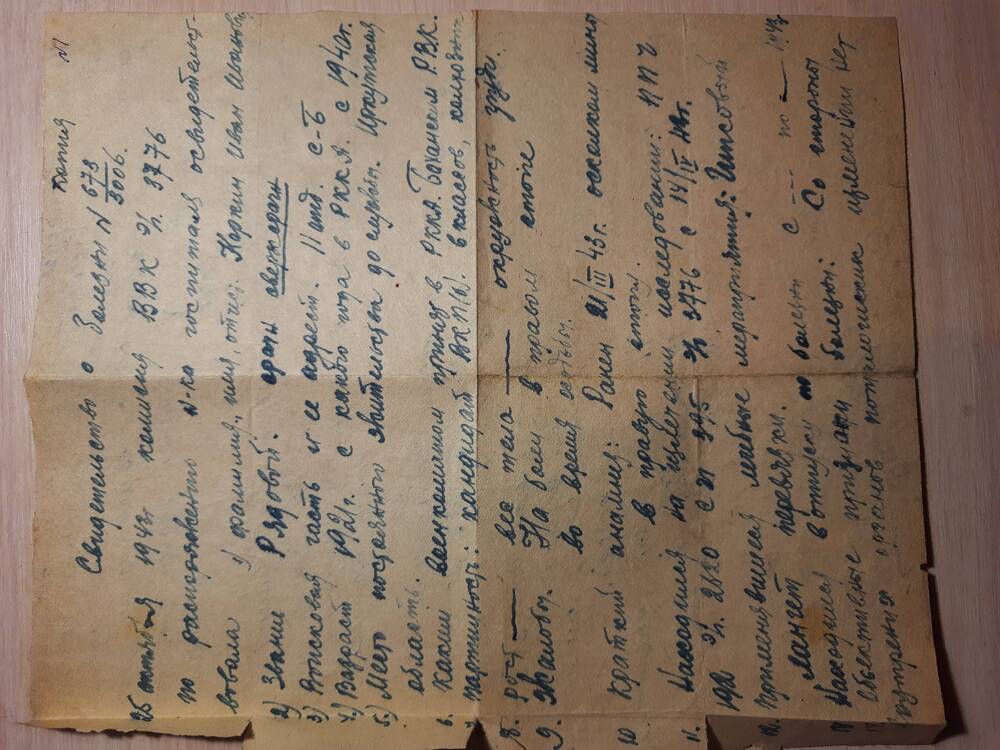 Копия №1
Свидетельство о болезни N 673/3006.
25 октября 1943г комисия ВВК э/г. 3776
по распоряжению н-ка госпиталя освидетельст-
вовала 1) фамилия, имя, отчест. Коркин Иван Иванович
2) Звание Рядовой. срочн сверхсрочн
3) Воисковая часть и ее адрест. II отд. с-Б
4.) Вазраст 1921г. с какого года в РККА. с 1940г.
5.) Место постоянного жительства до службы. Иркутская
область.
6. Каким военкоматом принят в РККА. Боханским Р.В.К.
7. партийность: кандидат ВКП(б). 8 классов, колхозник
8. рост — вес тела — окружность груди.
9. Жалобы. На боли в правом стопе
во время ходьбы.
10 Краткий анамнез: Ранен 21/III 43г. осколком мины
в правую стопы.
11. Находился на излечении исследовании: ППГ
192 э/г. 2620 с 21 395 э/г 3776 с 14/IV 43г.
12. Применявшиеся лечебные мероприятия: Гипсовый
лангет перевязки.
Находился в отпуску по болезни с --- по — 1943г
объективные признаки болезни: Со стороны
внутрених органов потологиских изменений нет